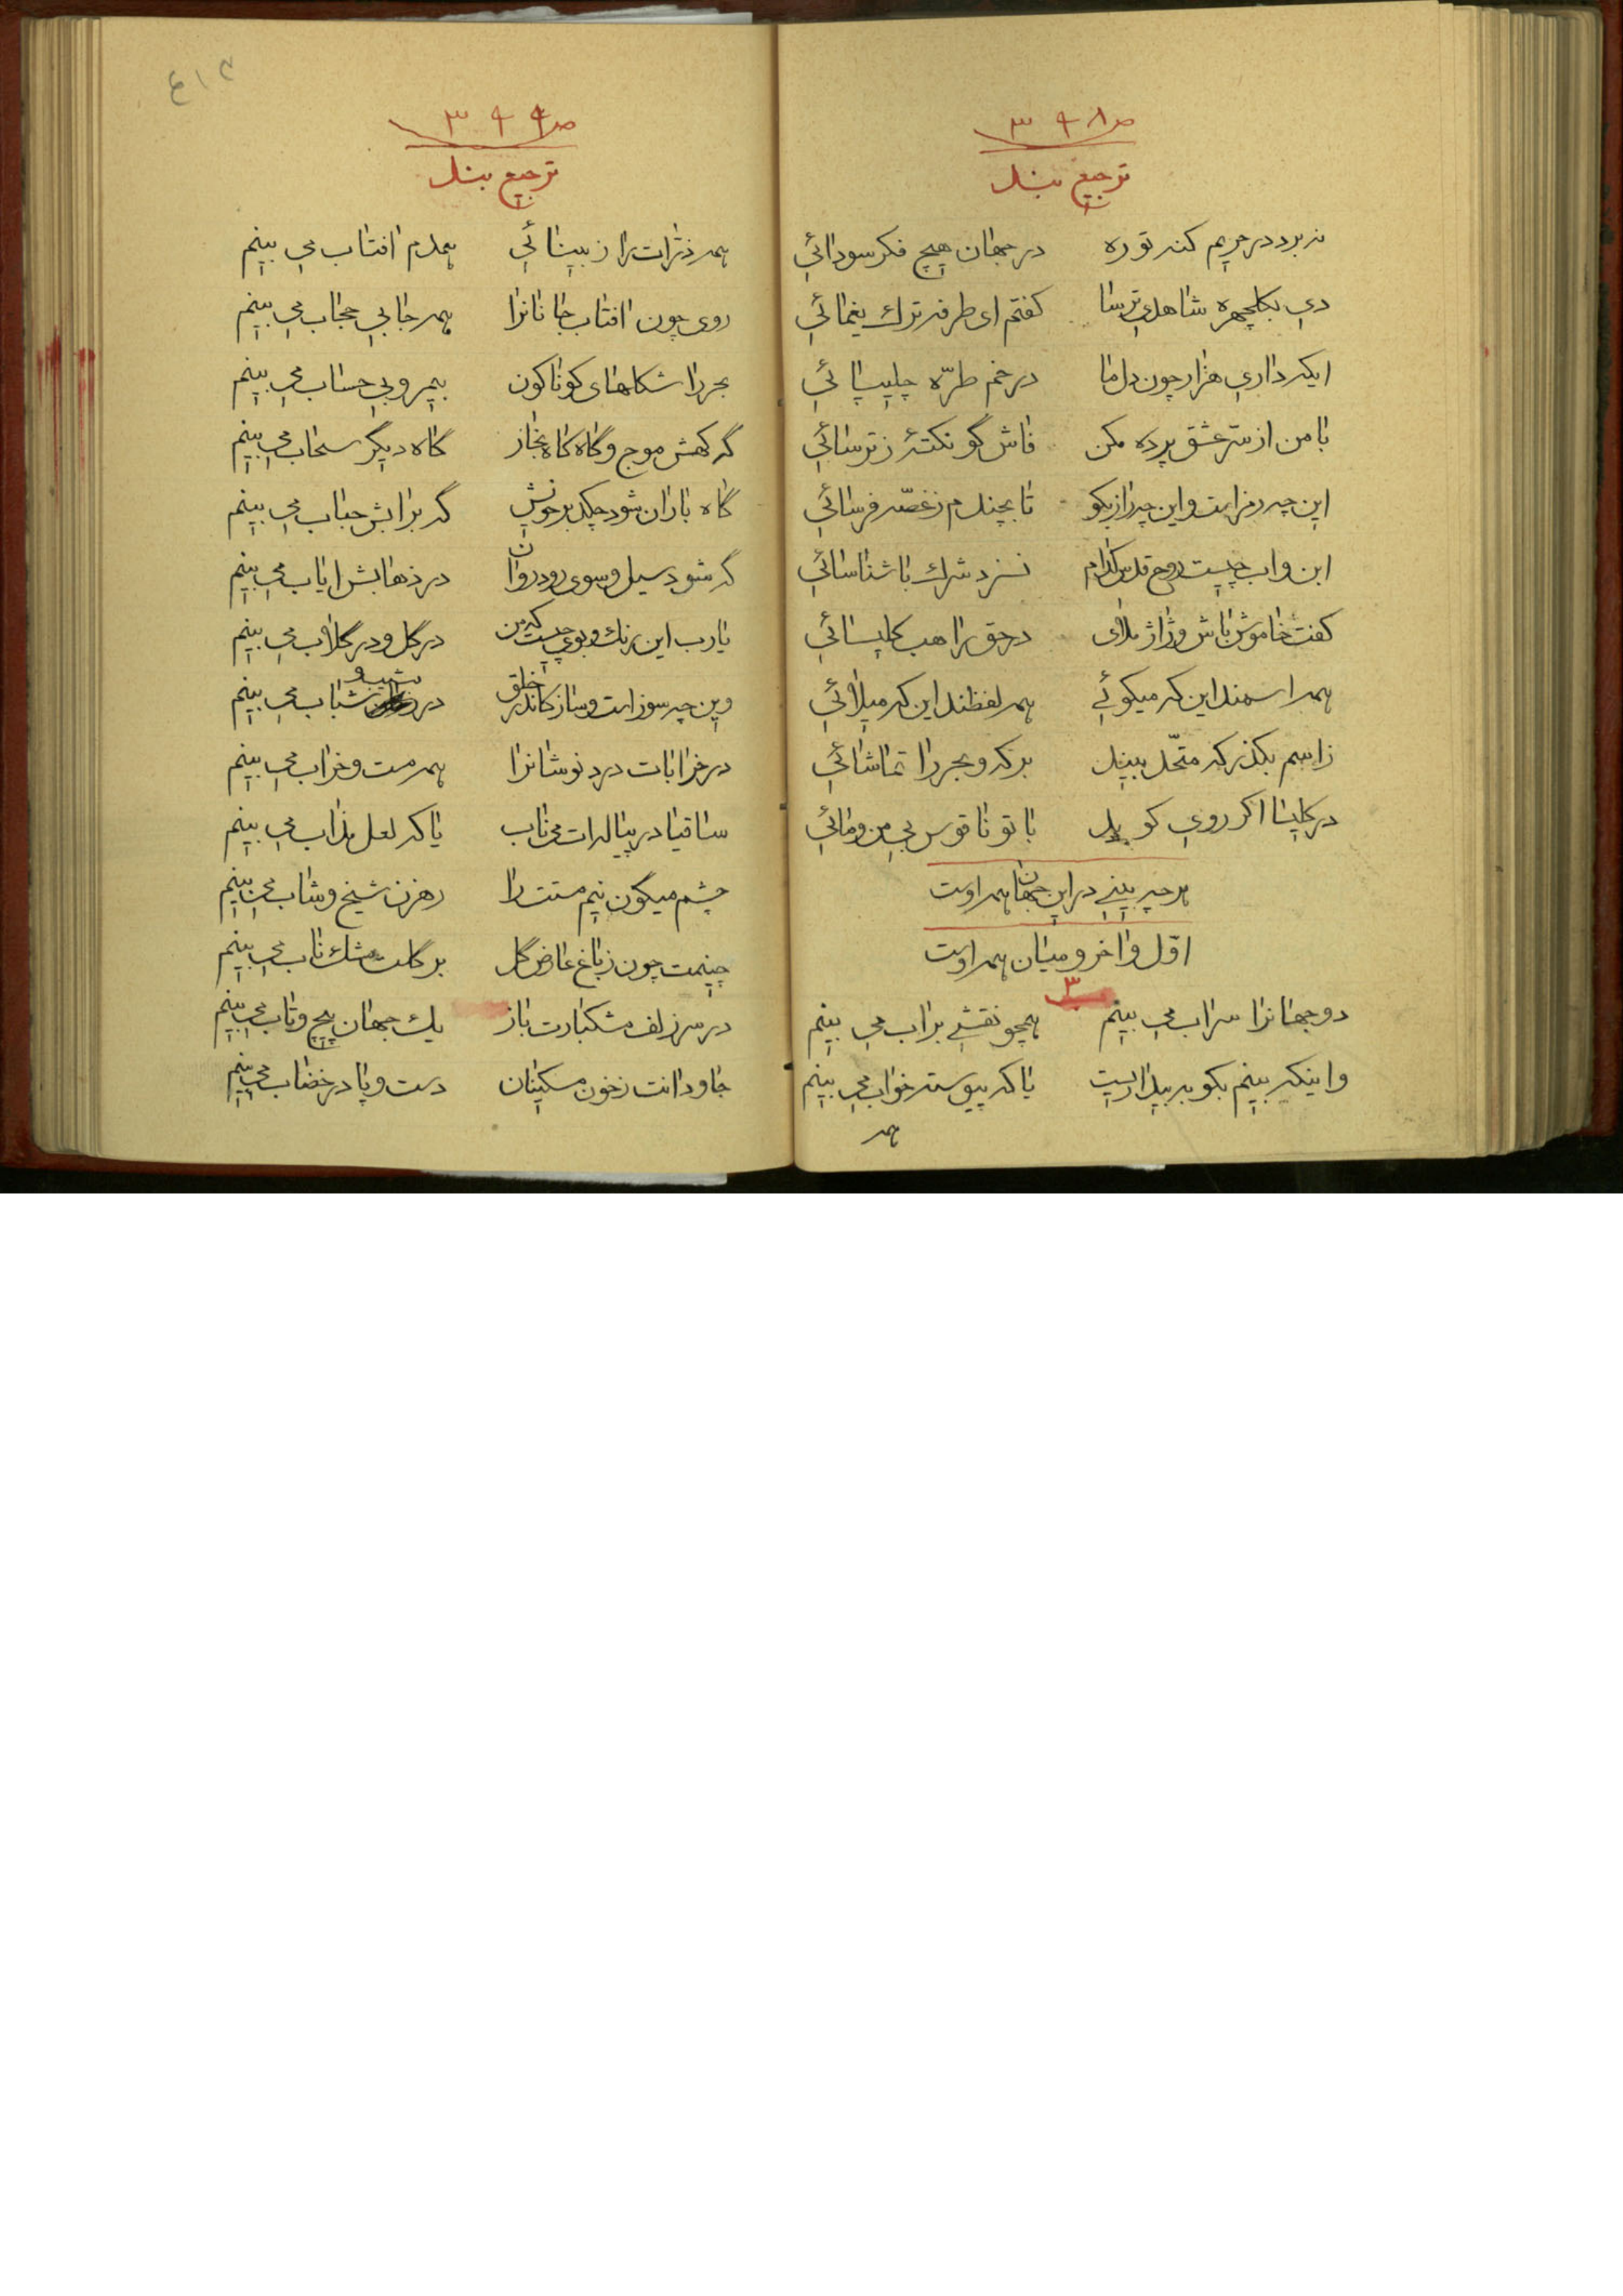 ص ۳۹۸
ترجیع بند
نه برد در حریم کنه تو ره در جهان هیچ فکر سودائی
دی بگلچهره شاهدی ترسا گفتم ای طرفه ترک یغمائی
ایکه داری هزار چون دل ما در خم طرّه چلیپائی
با من از سر عشق پرده مکن فاش گو نکتهٔ ز ترسائی
این چه رمز است و این چه راز بگو تا بچندم ز غصّه فرسائی
ابن و اب چیست روح قدس کدام نسزد شرک با شناسائی
گفت خاموش باش و ژاژ ملای در حق راهب کلیسائی
همه اسمند این که میگوئی همه لفظند این که میلائی
ز اسم بگذر که متحد بیند برکه و بحر را تماشائی
در کلیسا اگر روی گوید با تو ناقوس بی من و مائی
هر چه بینی در این جهان همه اوست
اوّل و اخر و میان همه اوست
۳
دو جهانرا سراب می بینم همچو نقشی بر اب می بینم
و اینکه بینم بگو به بیداریست یا که پیوسته خواب می بینم
همه
۴۱۲
ص ۳۹۹
ترجیع بند
همه ذرّات را ز بینائی همدم افتاب می بینم
روی چون افتاب جانانرا همه جا بی حجاب می بینم
بحر را شکلهای گوناگون بیمر و بی حساب می بینم
گه کهش موج و گاه گاه بخار گاه دیگر سحاب می بینم
گاه باران شود چکد بر خویش گه بر ابش حباب می بینم
گه شود سیل و سوی رود روان در ذهابش ایاب می بینم
یا رب این رنگ و بوی چیست که من در گل و در گلاب می بینم
وین چه سوز است و ساز کاندر خلق در شیب و شباب می بینم
در خرابات درد نوشانرا همه مست و خراب می بینم
ساقیا در پیاله ات می ناب یا که لعل مذاب می بینم
چشم میگون نیم مستت را رهزن شیخ و شاب می بینم
چینمت چون ز باغ عارض گل بر گلت مشک ناب می بینم
در سر زلف مشکبارت باز یک جهان پیچ و تاب می بینم
جاودانت ز خون مسکینان دست و پا در خضاب می بینم